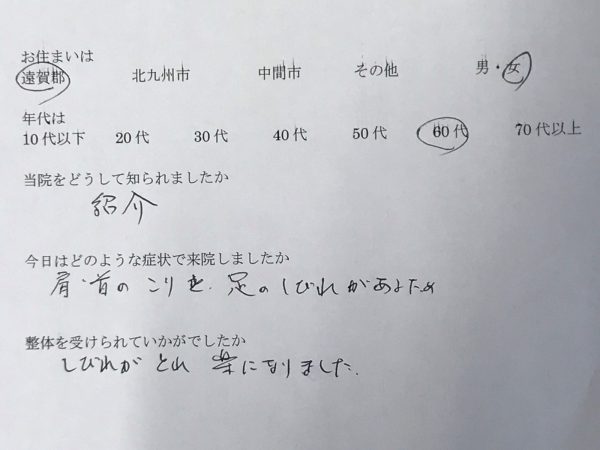 お住まいは
遠賀郡 北九州市 中間市 その他 男・女
年代は
10代以下 20代 30代 40代 50代 60代 70代以上
当院をどうして知られましたか
紹介
今日はどのような症状で来院しましたか
肩・首のこりと、足のしびれがあるため
整体を受けられていかがでしたか
しびれがとれ 楽になりました。